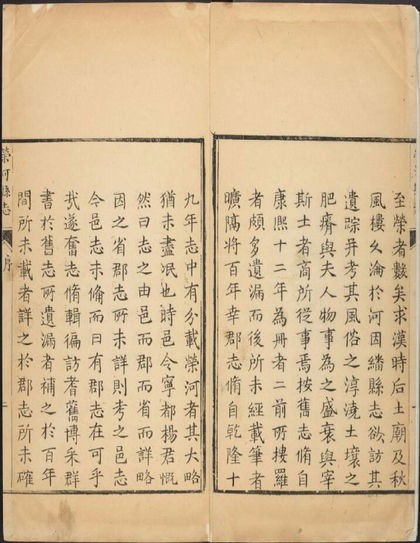 至榮者數矣求漢時后土廟及秋
風樓久淪於河因繙縣志欲訪其
遺踪并考其風俗之淳澆土壤之
肥瘠與夫人物事為之盛衰與宰
斯土者商所從事焉按舊志脩自
康熙十二年為冊者二前所搜羅
者頗多遺漏而後所未經載筆者
曠隔將百年幸郡志脩自乾隆十
九年志中有分載榮河者其大略
猶未盡泯也時邑令寧都楊君慨
然曰志之由邑而郡而省而詳略
因之省郡志所未詳則考之邑志
今邑志未脩而曰有郡志在可乎
㢤遂奮志脩輯徧訪耆舊博采群
書於舊志所遺漏者補之於百年
間所未載者詳之於郡志所未確
榮河縣志
序
二